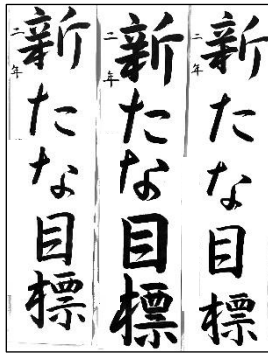 新たな目標
二年
新たな目標
二年
新たな目標
二年